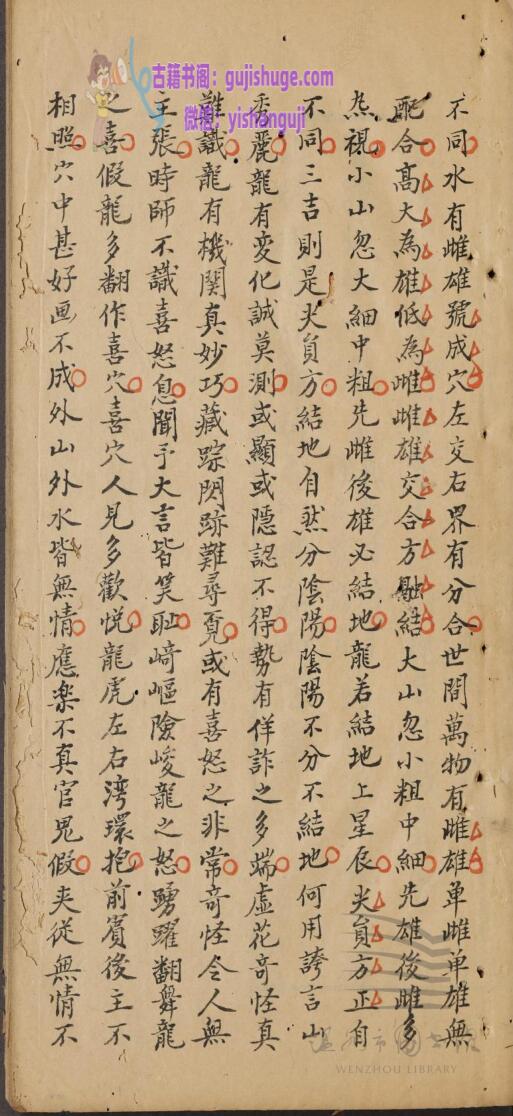 古籍书阁：gujishuge.com
微信：yishanguji
不同水有雌雄號成穴左交右界有分合世間萬物有雌雄单雌单雄無
配合高大為雄低為雌雌雄交合方融結大山忽小粗中細先雄後雌多
然視小山忽大細中粗先雌後雄必結地龍若結地上星辰尖負方正自
不同三吉則是尖負方結地自然分陰陽陰陽不分不結地何用誇言山
秀麗龍有变化誠莫測或顯或隱認不得勢有佯詐之多端虛花奇怪真
難識龍有機関真妙巧藏踪閃跡難尋覓或有喜怒之非常奇怪令人無
主張時師不識喜怒息聞予大言皆笑耻崎嶇險峻龍之怒踴躍翻舞龍
之喜假龍多翻作喜穴喜穴人見多歡悦龍虎左右湾環抱前賓後主不
相照穴中甚好画不成外山外水皆無情應楽不真官鬼假夹従無情不
WENZHOU LIBRARY